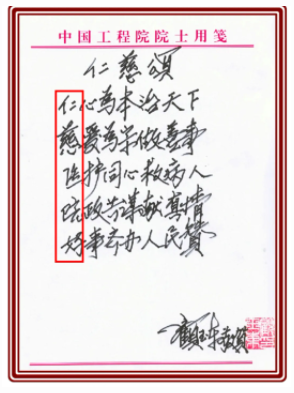 中国工程院院士用笺
仁慈颂
仁心为本治天下
慈爱为宗做善事
医护同心救病人
院政共谋献真情
好事齐办人民赞
顾玉东敬贺